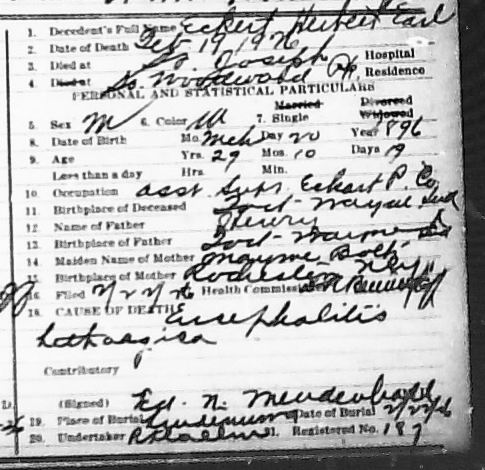 1. Decedent's Full Name Eckert Herbert Earl
2. Date of Death Feb 19 1926
3. Died at St. Joseph Hospital
4. Died at So. Woodward Residence
PERSONAL AND STATISTICAL PARTICULARS
Married Divorced
5. Sex M 6. Color W 7. Single Widowed
8. Date of Birth Mo. Mch Day 20 Year 1896
9. Age Yrs. 29 Mos. 10 Days
Less than a day Hrs. Min.
10. Occupation asst Supt. Eckart P. Co
11. Birthplace of Deceased Fort Wayne Ind
12. Name of Father Henry
13. Birthplace of Father Fort Wayne
14. Maiden Name of Mother Mayme
15. Birthplace of Mother Rochester N.Y.
16. Filed 2/22/26 Health Commissioner
18. CAUSE OF DEATH Encephalitis
Lethargica
Contributory
(Signed) Ed. N. Mendenhall
19. Place of Burial Lindenwood Date of Burial 2/22/26
20. Undertaker 21. Registered No. 187